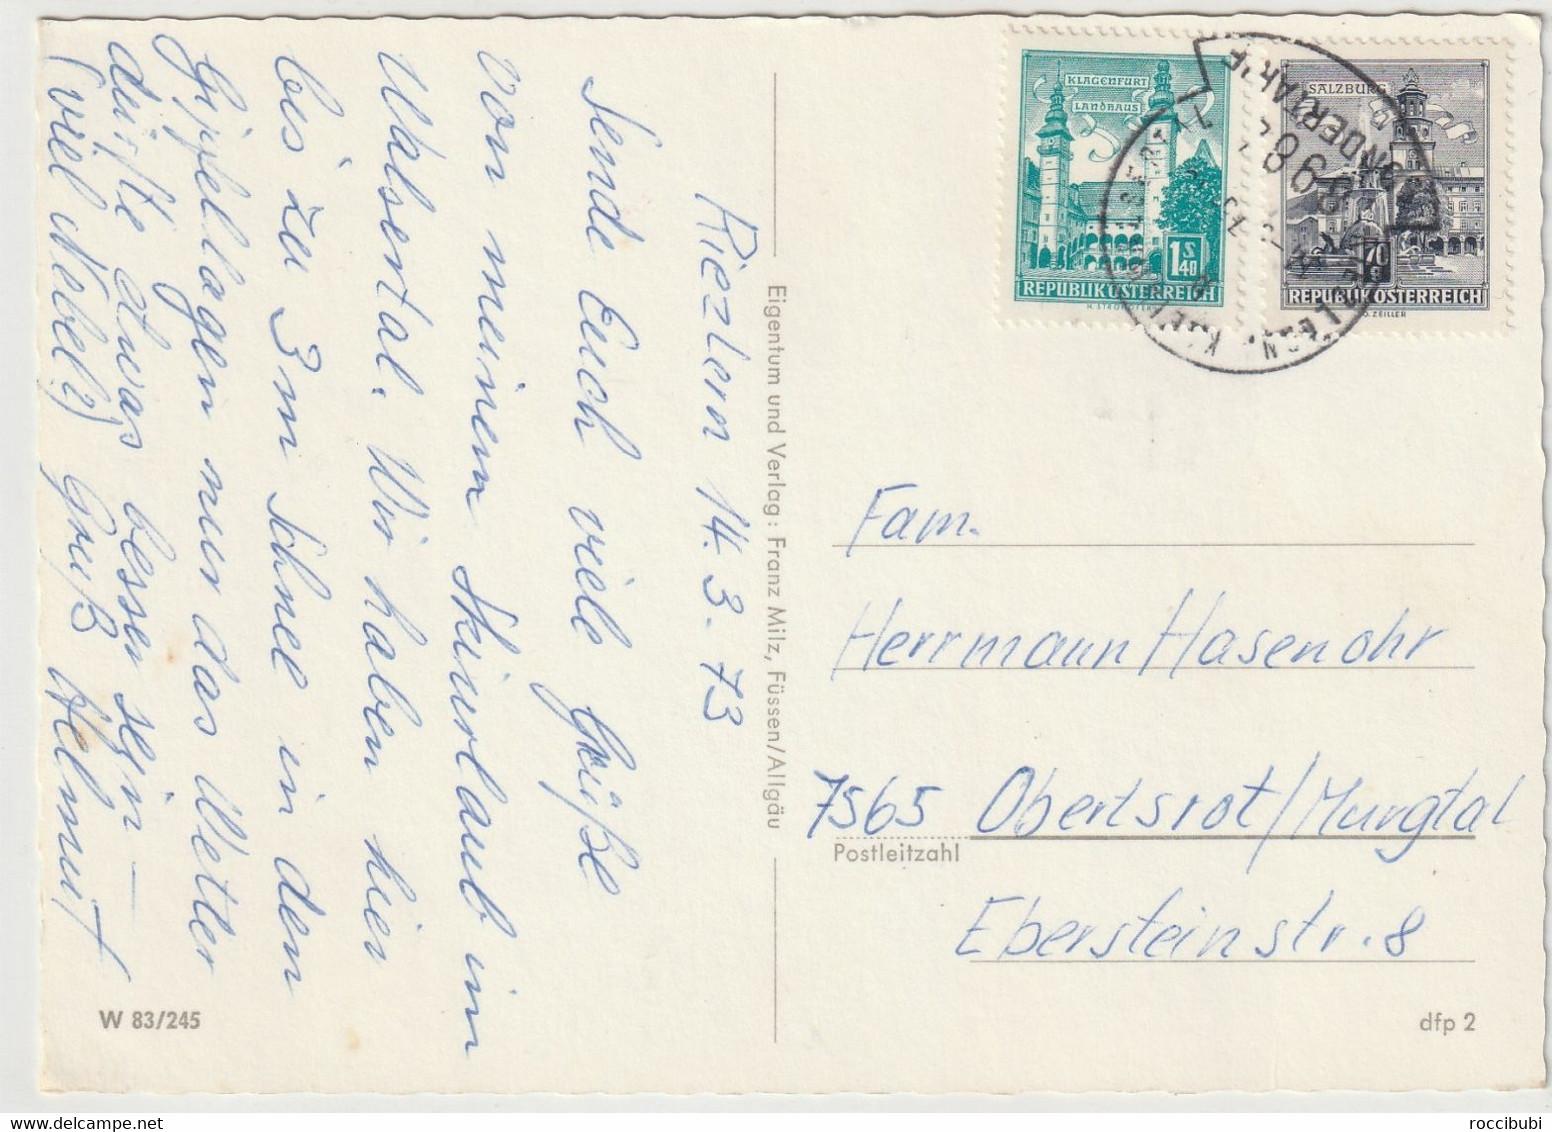 Riezlern 14. 3. 73
Sende Euch viele Grüße
von meinem Skiurlaub im
Walsertal. Wir haben hier
bis zu 3m Schnee in den
Gipfellagen nur das Wetter
dürfte etwas besser sein –
(viel Nebel) Gruß Helmut
Eigentum und Verlag: Franz Milz, Füssen/Allgäu
W 83/245
KLAGENFURT
LANDHAUS
1 S 40
REPUBLIK ÖSTERREICH
SALZBURG
70 g
REPUBLIK ÖSTERREICH
O. ZEILLER
Fam.
Herrmann Hasenohr
7565 Obertsrot/Murgtal
Postleitzahl
Ebersteinstr. 8
dfp 2
roccibubi